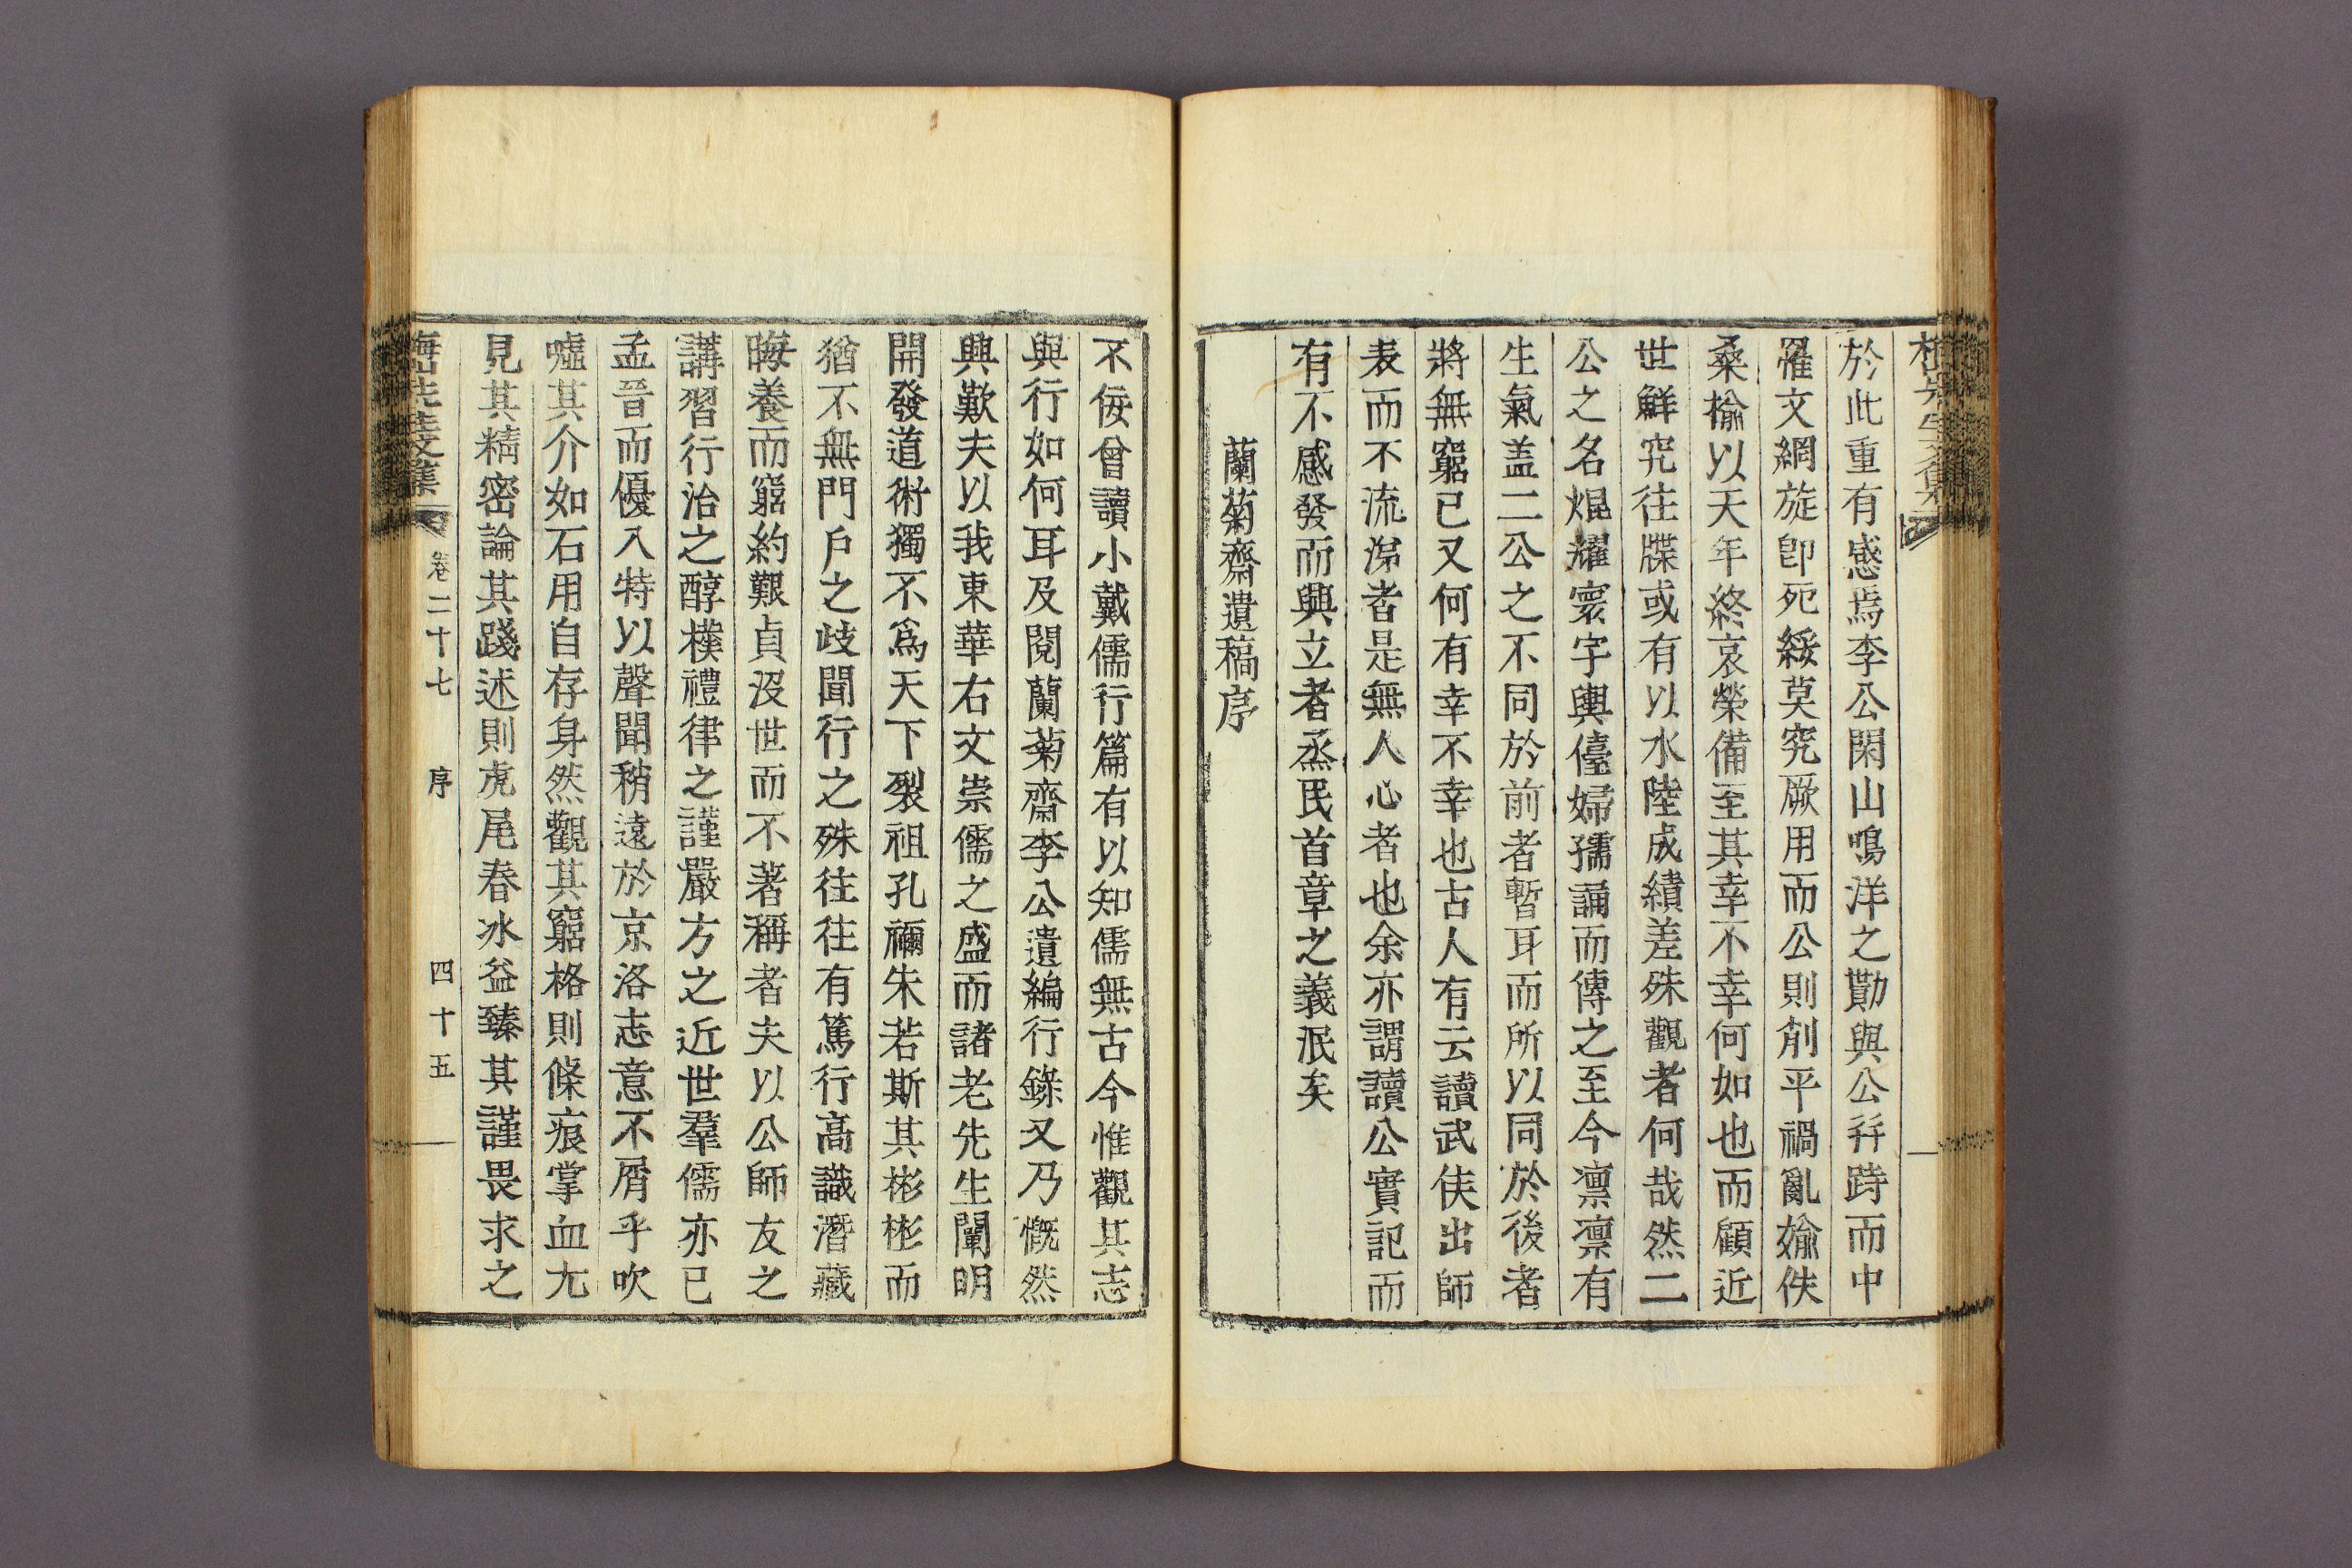 於此重有感焉李公閑山鳴洋之勳與公幷跱而中
罹文網旋卽死綏莫究厥用而公則削平禍亂婾佚
桑楡以天年終哀榮備至其幸不幸何如也而顧近
世鮮究往牒或有以水陸成績差殊觀者何哉然二
公之名焜耀寰宇輿儓婦孺誦而傳之至今凛凛有
生氣盖二公之不同於前者暫耳而所以同於後者
將無窮已又何有幸不幸也古人有云讀武侯出師
表而不流涕者是無人心者也余亦謂讀公實記而
有不感發而興立者烝民首章之義泯矣
蘭菊齋遺稿序
不佞曾讀小戴儒行篇有以知儒無古今惟觀其志
與行如何耳及閱蘭菊齋李公遺編行錄又乃慨然
興歎夫以我東華右文崇儒之盛而諸老先生闡明
開發道術獨不爲天下裂祖孔禰朱若斯其彬彬而
猶不無門戶之歧聞行之殊往往有篤行高識潛藏
晦養而窮約艱貞沒世而不著稱者夫以公師友之
講習行治之醇樸禮律之謹嚴方之近世羣儒亦已
孟晉而優入特以聲聞稍遠於京洛志意不屑乎吹
噓其介如石用自存身然觀其窮格則條痕掌血尢
見其精密論其踐述則虎尾春氷益臻其謹畏求之
卷二十七 序 四十五